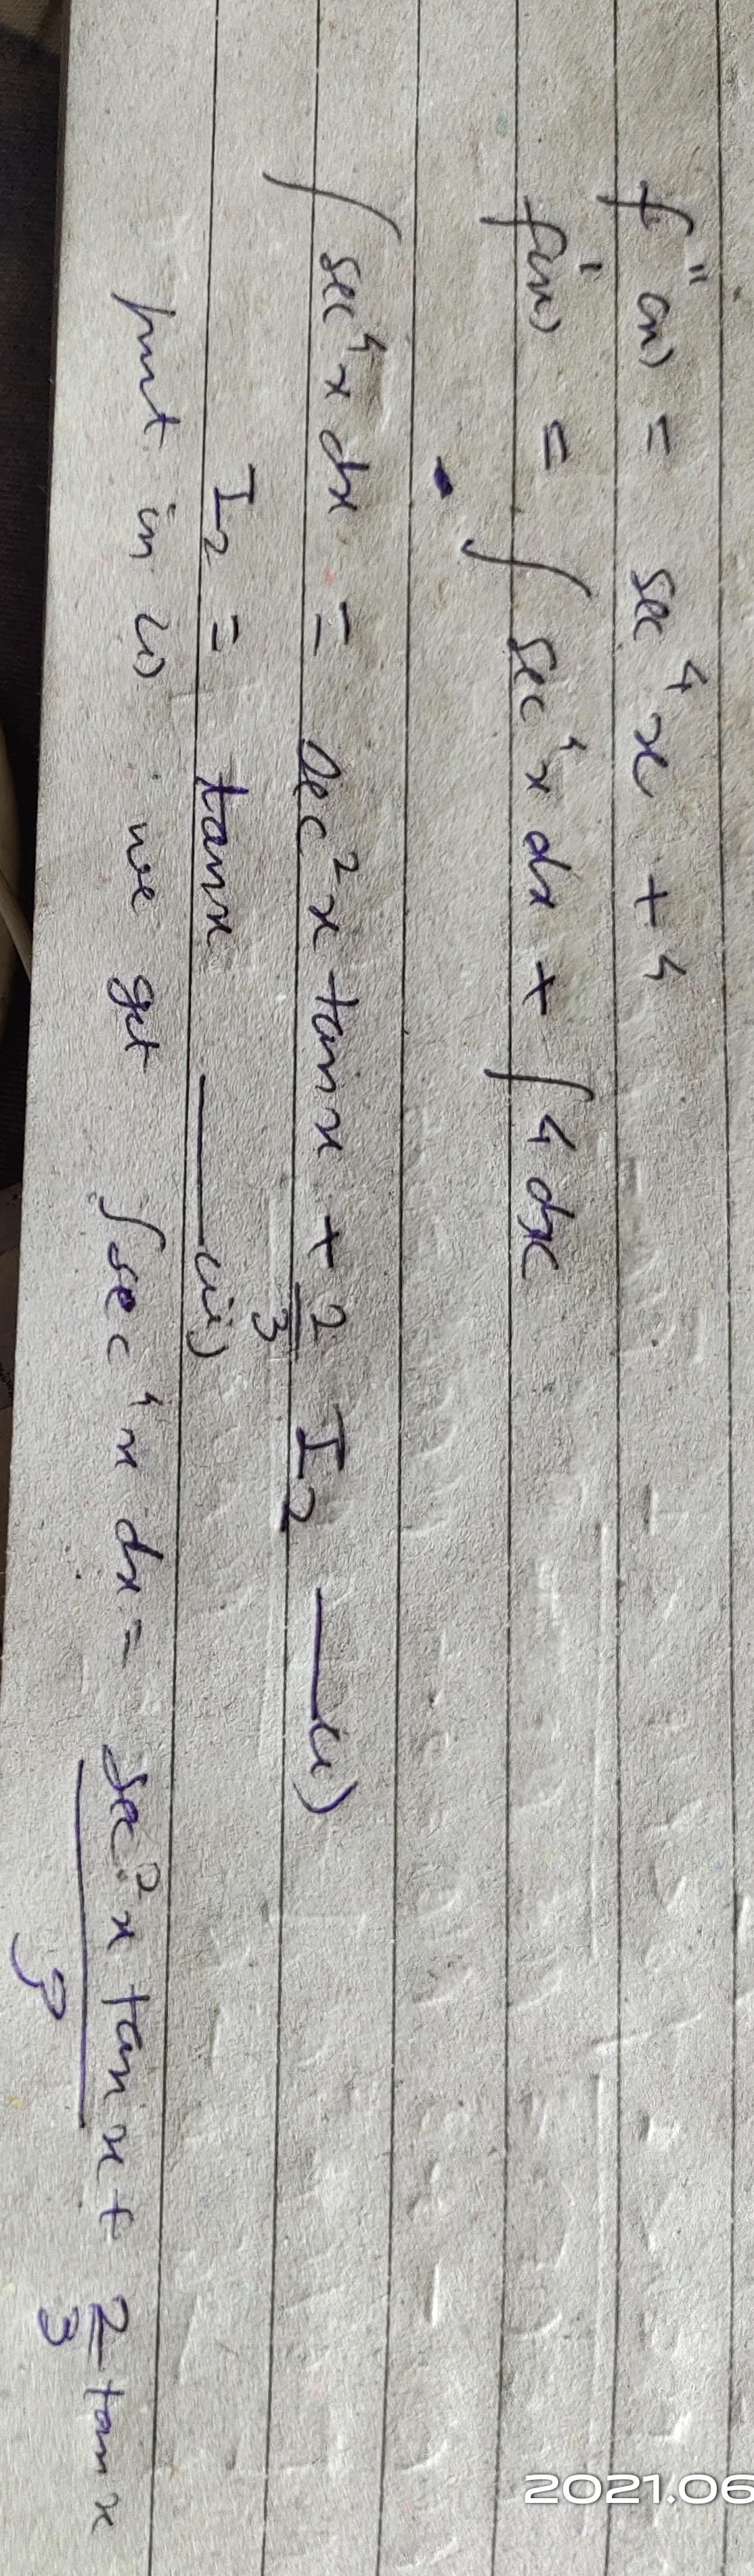 f''(x) = sec⁴x + 4
f'(x) = ∫ sec⁴x dx + ∫ 4 dx
∫ sec⁴x dx = sec²x tanx + 2/3 I₂ —(i)
I₂ = tanx —(ii)
put in (i) we get ∫sec⁴x dx = sec²x tanx/3 + 2/3 tanx
2021.06